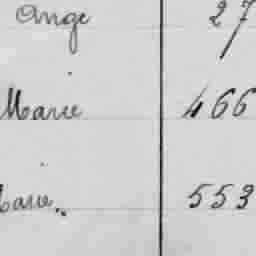 Ange 27
Marie 466
Marie 553